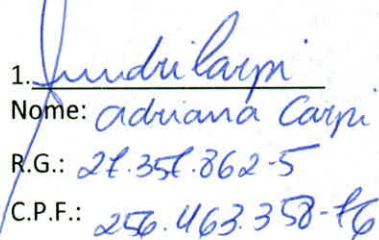 1.
Nome: adriana Carpi
R.G.: 27.357.862-5
C.P.F.: 256.463.358-76